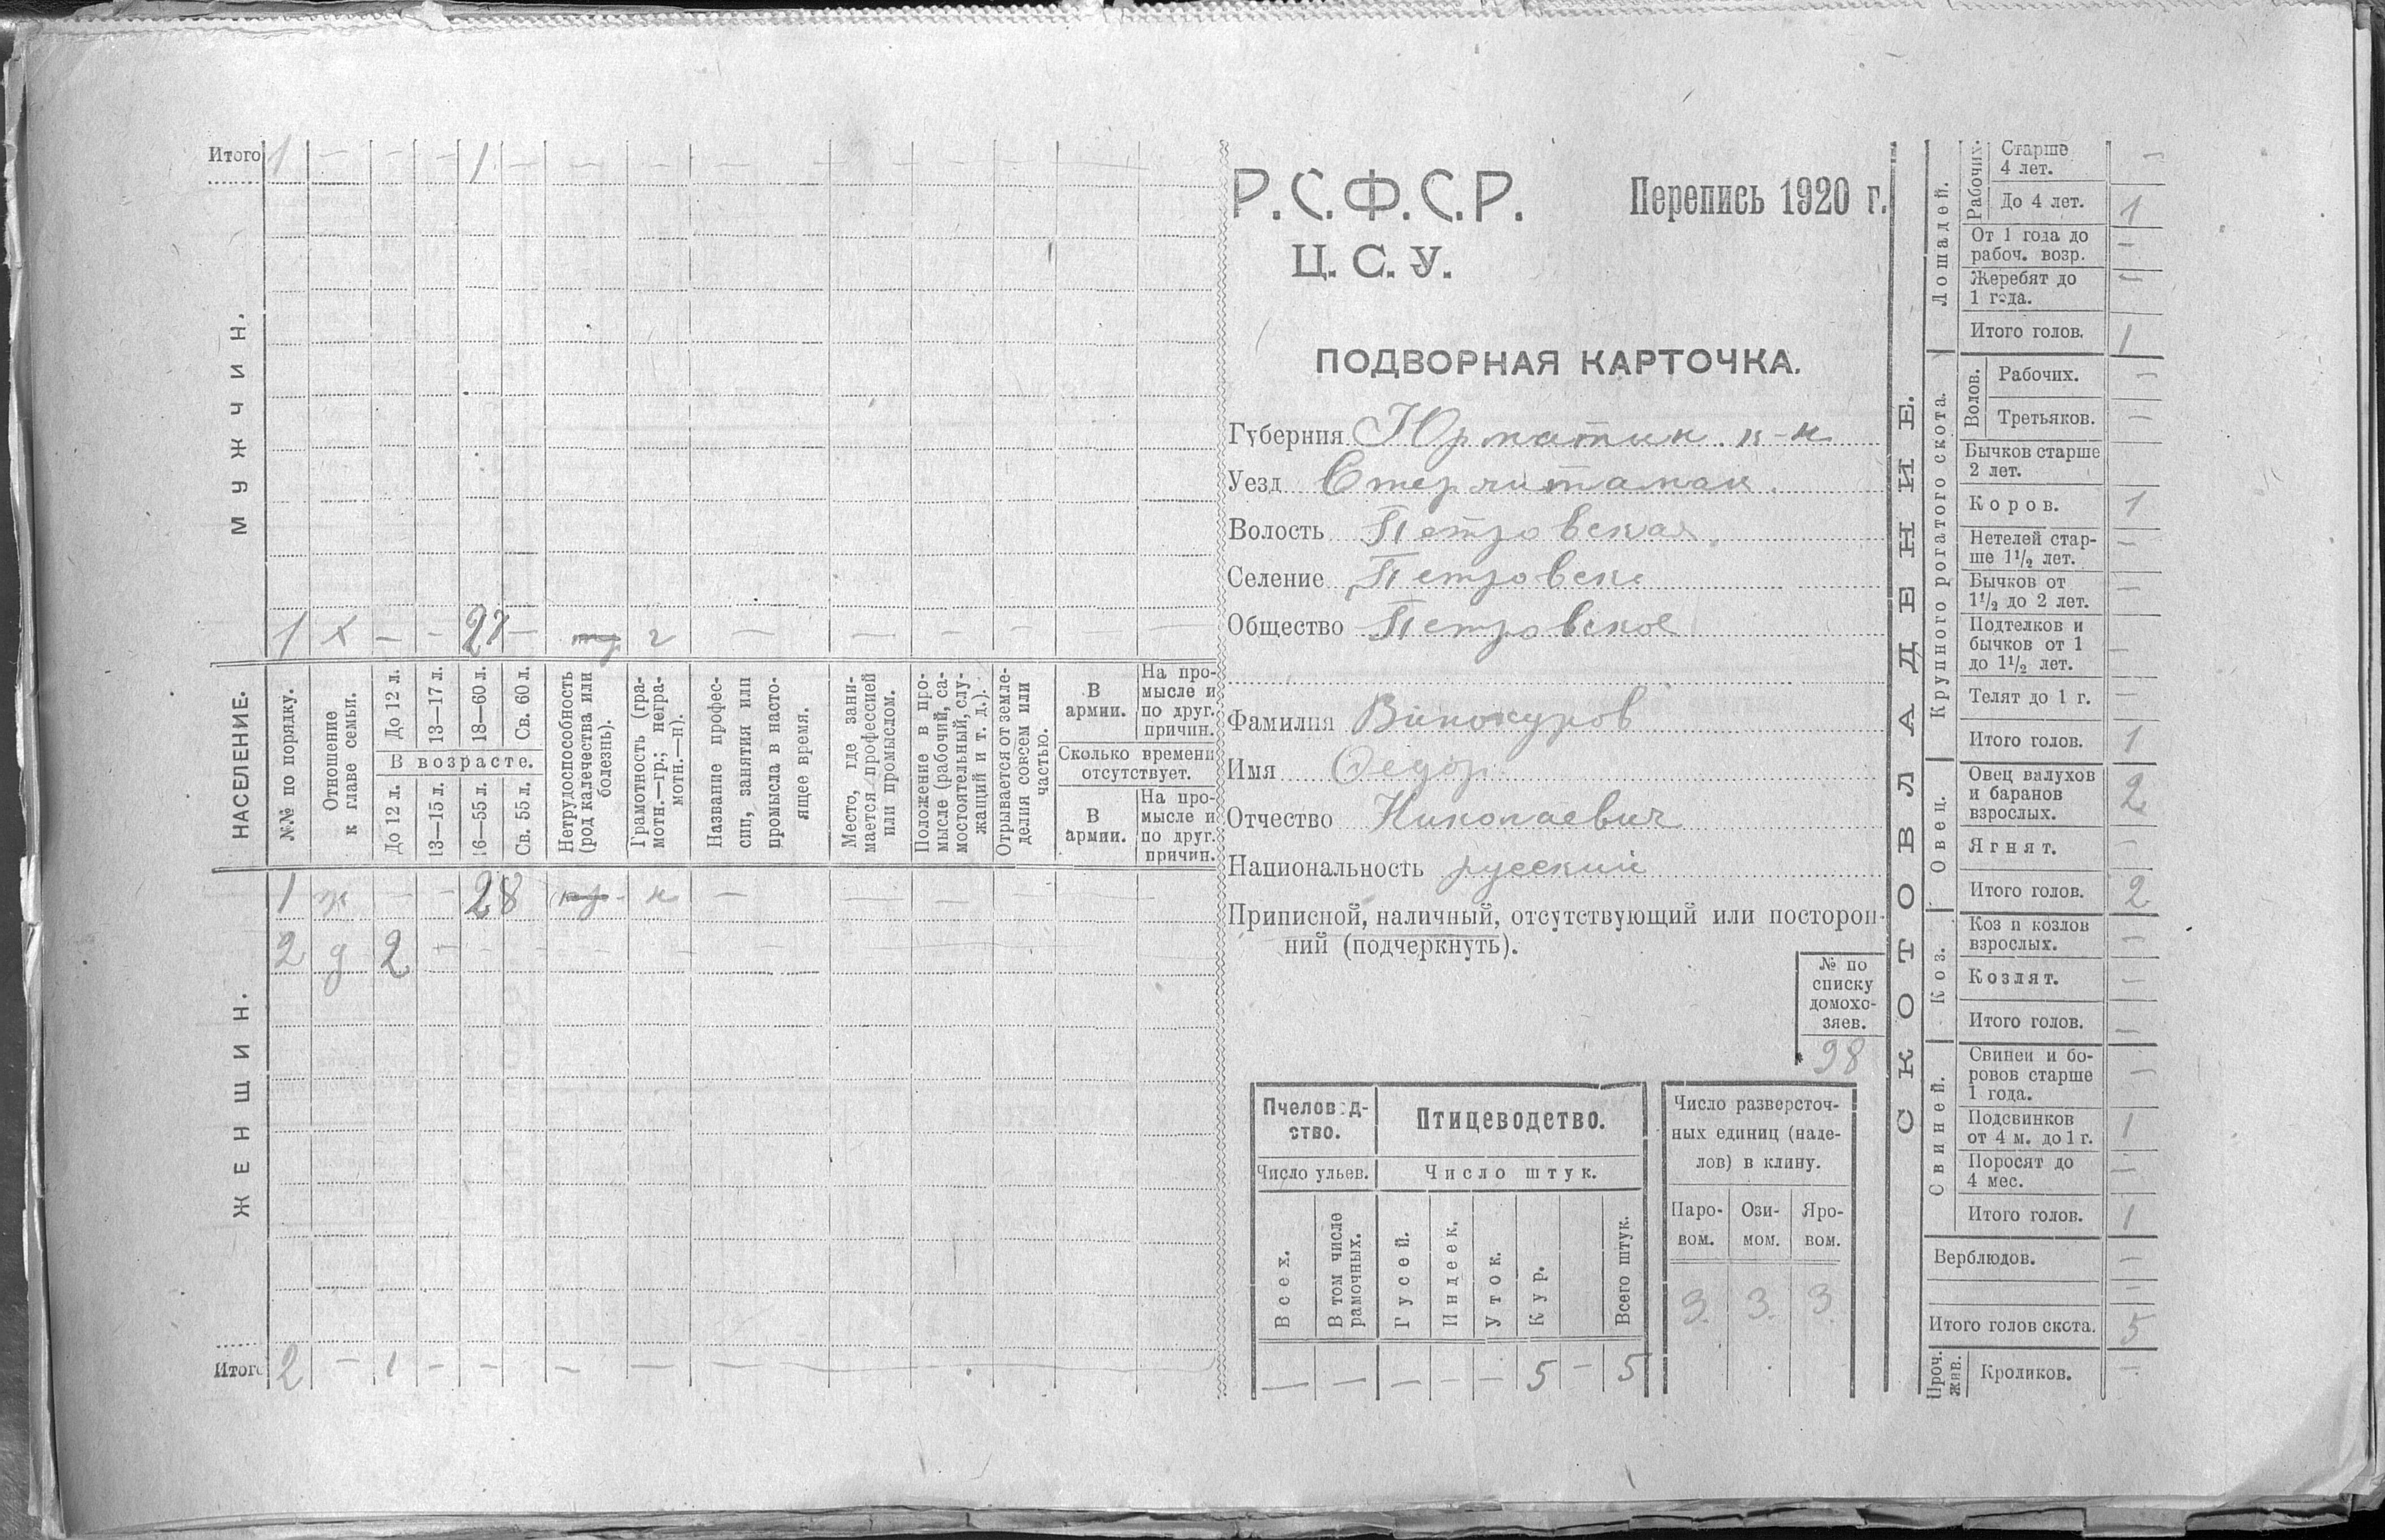 Итого 1 — — — 1 — — — — — — — — —
МУЖЧИН.
1 х — — 27 — г — — — — — —
НАСЕЛЕНИЕ.
№№ по порядку.
Отношение к главе семьи.
До 12 л. 13—17 л. 18—60 л. Св. 60 л.
В возрасте.
До 12 л. 13—15 л. 16—55 л. Св. 55 л.
Нетрудоспособность (род калечества или болезнь).
Грамотность (грамотн.—гр.; неграмотн.—н).
Название профессии, занятия или промысла в настоящее время.
Место, где занимается профессией или промыслом.
Положение в промысле (рабочий, самостоятельный, служащий и т. д.).
Отрывается от земледелия совсем или частью.
В армии.
На промысле и по друг. причин.
Сколько времени отсутствует.
В армии.
На промысле и по друг. причин.
1 ж — — 28 н — — —
2 д 2 — — — — — — —
ЖЕНЩИН.
Итого 2 — 1 — — — — — —
Р.С.Ф.С.Р. Перепись 1920 г.
Ц.С.У.
ПОДВОРНАЯ КАРТОЧКА.
Губерния Юрматин. к-н
Уезд Стерлитамак.
Волость Петровская.
Селение Петровск
Общество Петровское
Фамилия Винокуров
Имя Федор
Отчество Николаевич
Национальность русский
Приписной, наличный, отсутствующий или посторон-
ний (подчеркнуть).
№ по
списку
домохо-
зяев.
98
Пчеловод-
ство.
Число ульев.
Всех.
В том числе рамочных.
Птицеводство.
Число штук.
Гусей. Индеек. Уток. Кур. Всего штук.
— — — — — 5 — 5
Число разверсточ-
ных единиц (наде-
лов) в клину.
Паро-
вом.
Ози-
мом.
Яро-
вом.
3. 3. 3.
СКОТОВЛАДЕНИЕ.
Лошадей.
Рабочих.
Старше
4 лет. —
До 4 лет. 1
От 1 года до
рабоч. возр. —
Жеребят до
1 года. —
Итого голов. 1
Крупного рогатого скота.
Волов.
Рабочих. —
Третьяков. —
Бычков старше
2 лет.
Коров. 1
Нетелей стар-
ше 1½ лет. —
Бычков от
1½ до 2 лет. —
Подтелков и
бычков от 1
до 1½ лет. —
Телят до 1 г. —
Итого голов. 1
Овец.
Овец валухов
и баранов
взрослых. 2
Ягнят. —
Итого голов. 2
Коз.
Коз и козлов
взрослых. —
Козлят. —
Итого голов. —
Свиней.
Свиней и бо-
ровов старше
1 года. —
Подсвинков
от 4 м. до 1 г. 1
Поросят до
4 мес. —
Итого голов. 1
Верблюдов. —
—
Итого голов скота. 5
Проч. жив.
Кроликов. —